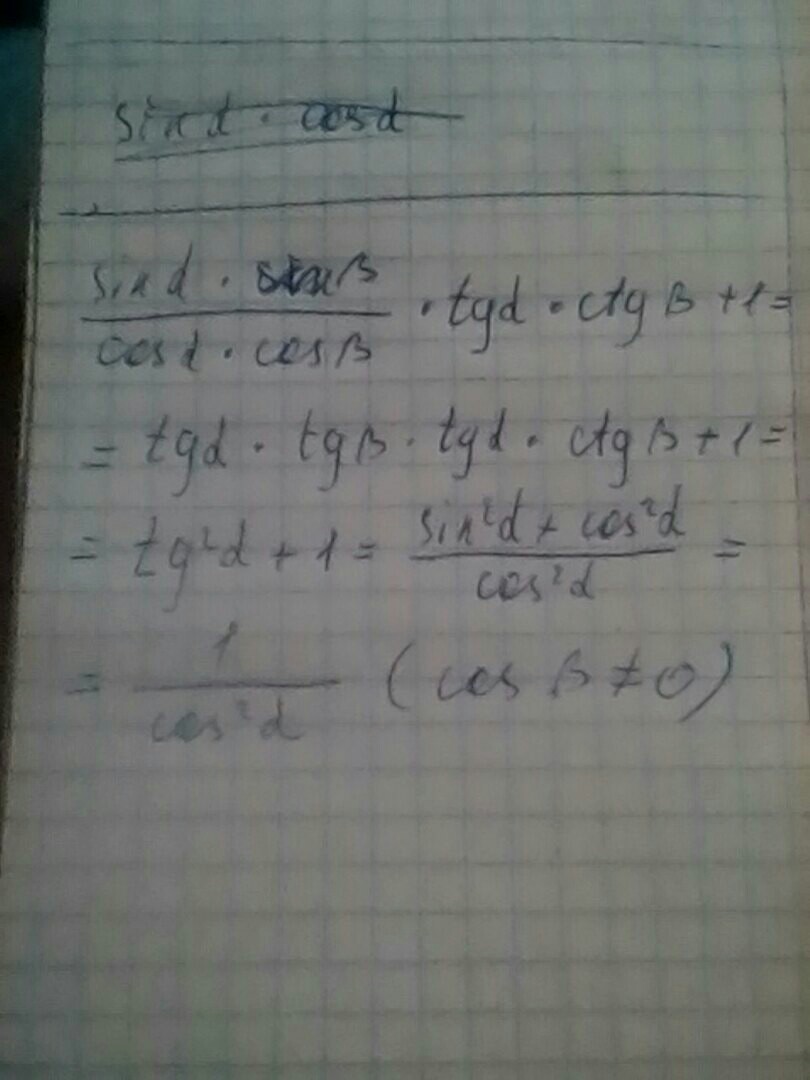 sin α · cos α
(sin α · sin β)/(cos α · cos β) · tg α · ctg β + 1 =
= tg α · tg β · tg α · ctg β + 1 =
= tg²α + 1 = (sin²α + cos²α)/(cos²α) =
= 1/(cos²α) (cos β ≠ 0)